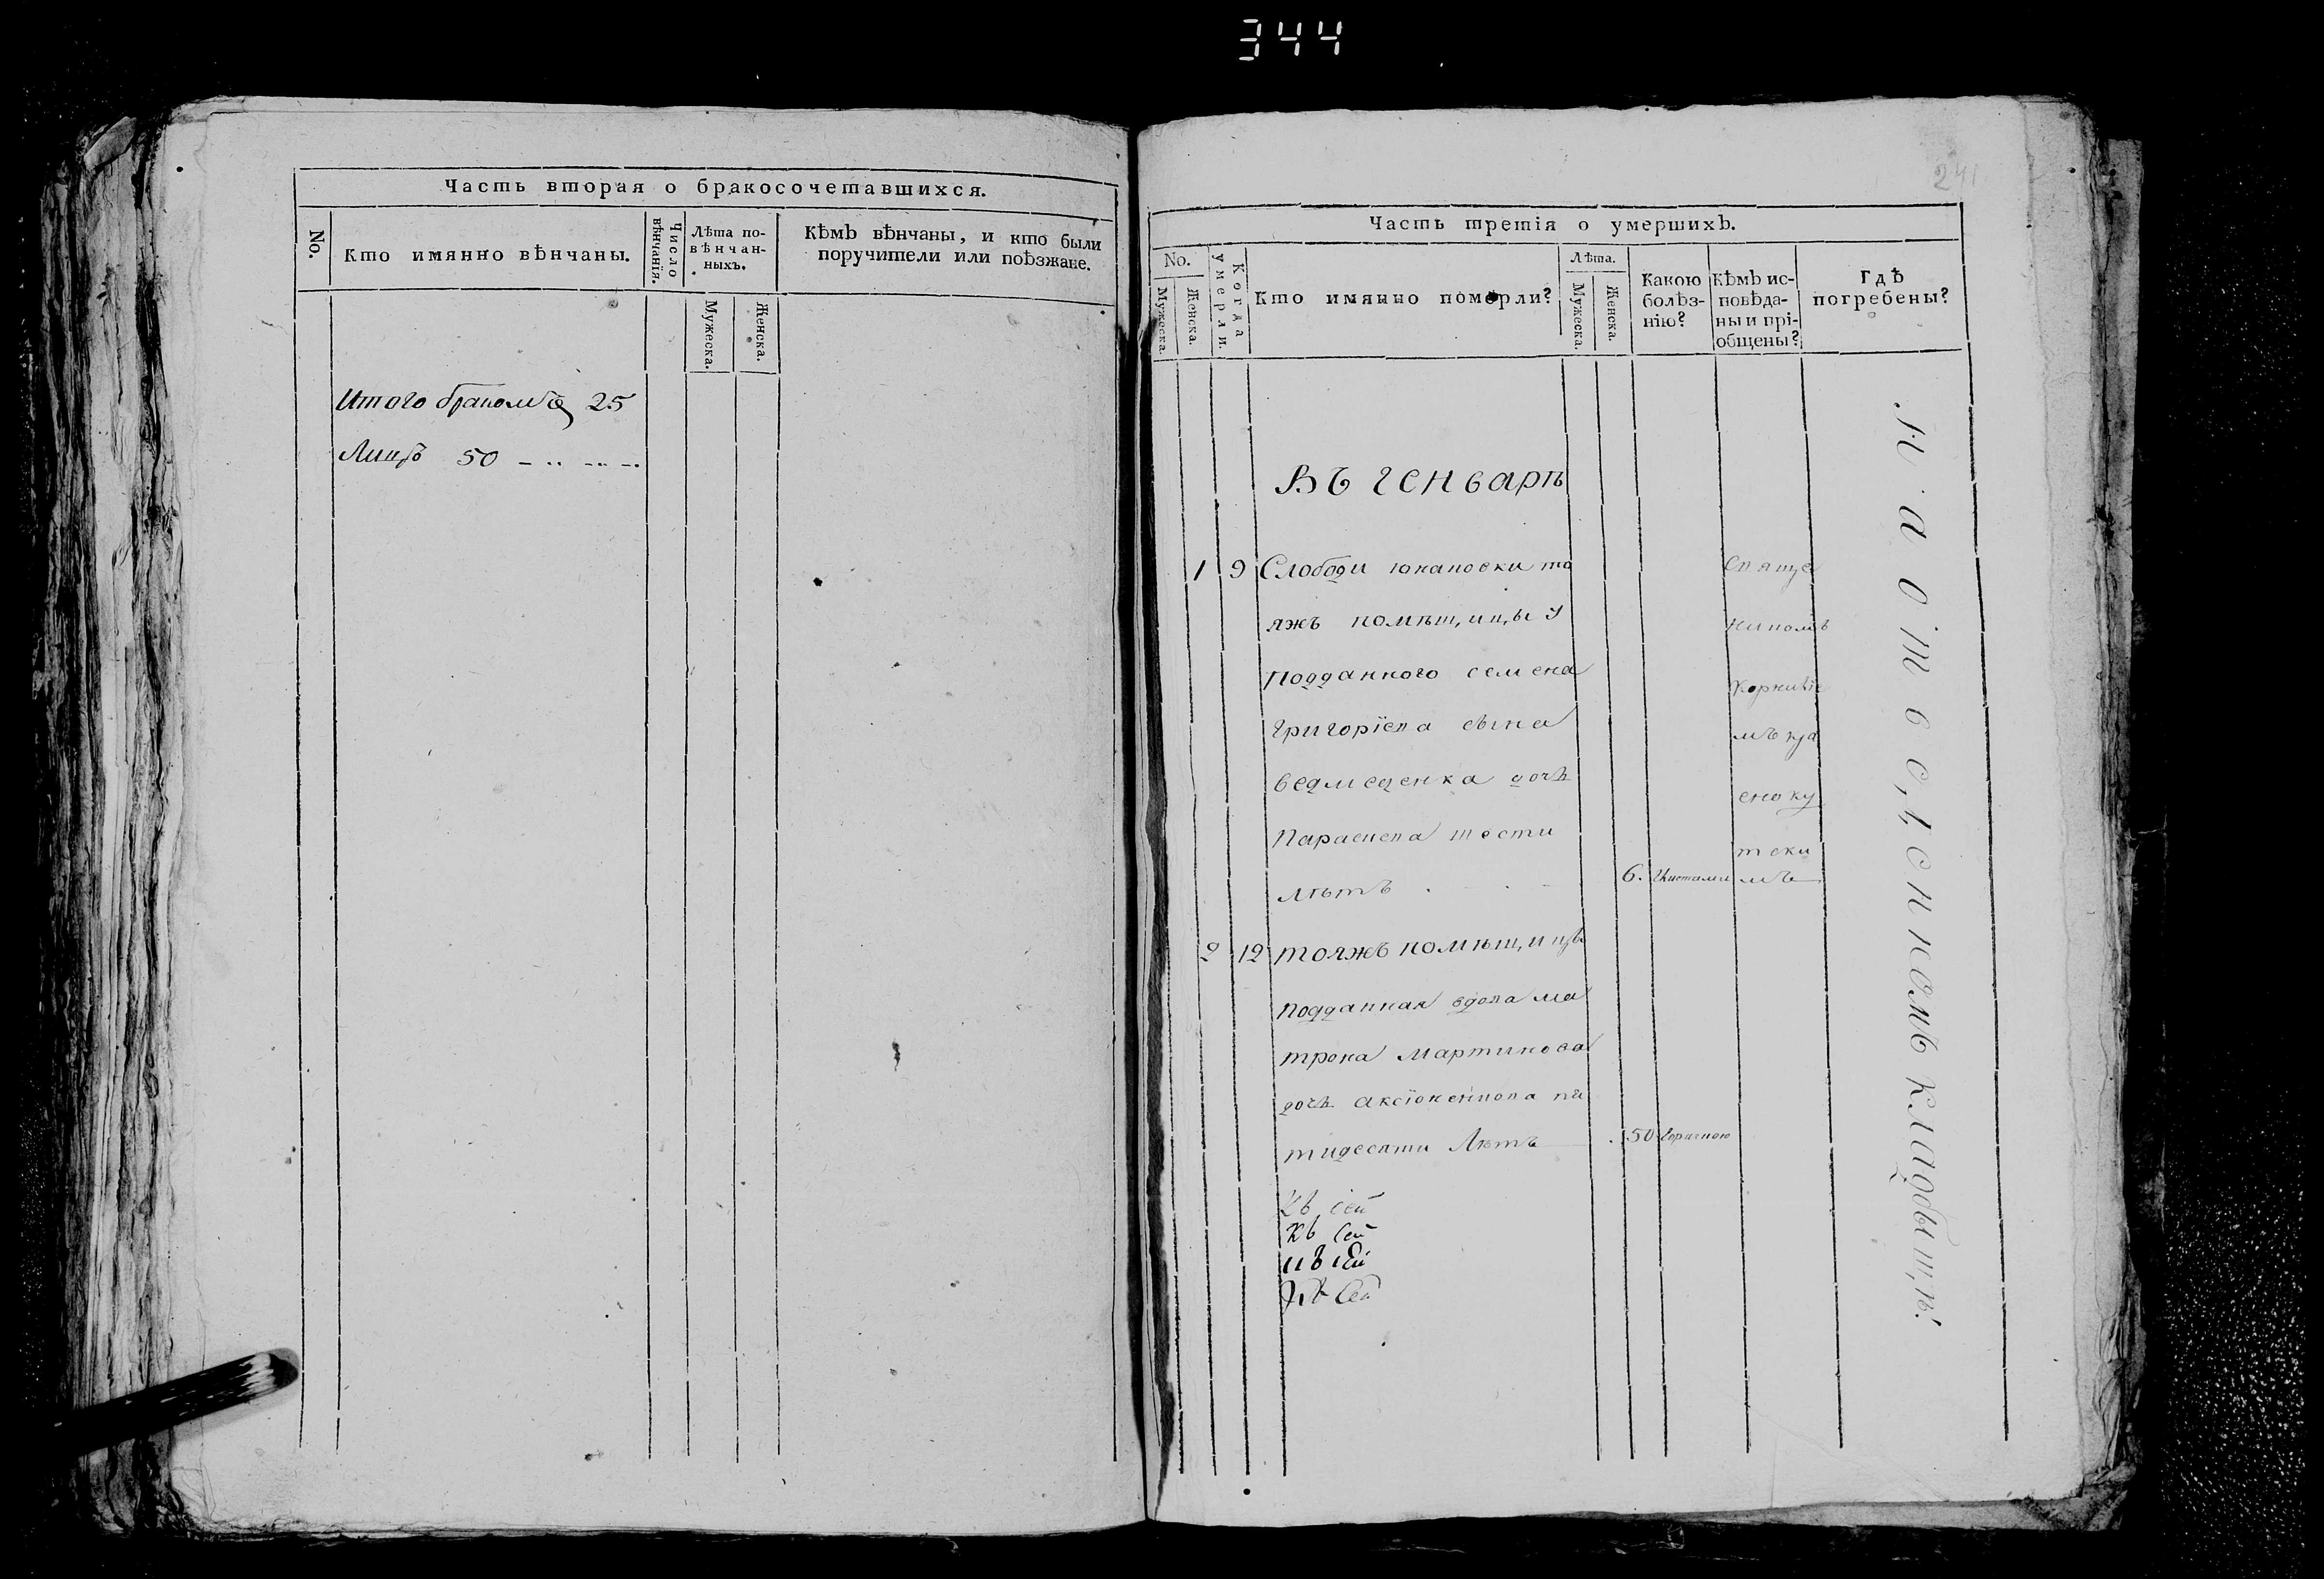 344
241
Часть вторая о бракосочетавшихся.
No.
Кто имянно вѣнчаны.
Число вѣнчанія.
Лѣта по-
вѣнчан-
ныхъ.
Мужеска.
Женска.
Кѣмъ вѣнчаны, и кто были
поручители или поѣзжане.
Итого браковъ 25
Лицъ 50
Часть третія о умершихъ.
No.
Мужеска.
Женска.
Когда умерли.
Кто имянно померли?
Лѣта.
Мужеска.
Женска.
Какою
болѣз-
нію?
Кѣмъ ис-
повѣда-
ны и прі-
общены?
Гдѣ
погребены?
Въ генварѣ
1 9 Слободи юнаковки то
яжъ помѣщицы У
подданного семена
григоріева сына
ведмеденка дочь
Параскева шести
лѣтъ 6.
Священ
никомъ
Корниліе
мъ
2 12 тояжъ помѣщицы
подданная вдова ма
трона мартинова
дочь
тидесяти Лѣтъ 50 Горячкою
на отведенномъ кладбищѣ.